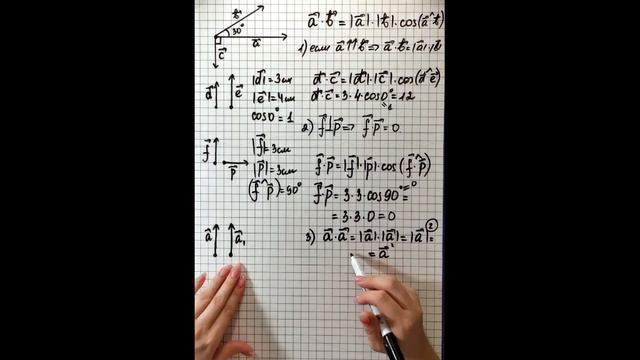 b⃗
30°
a⃗
c⃗
a⃗ · b⃗ = |a⃗| · |b⃗| · cos(a⃗^b⃗)
1) если a⃗ ↑↑ b⃗ ⇒ a⃗ · b⃗ = |a⃗| · |b⃗|
d⃗ e⃗
|d⃗| = 3 см
|e⃗| = 4 см
cos 0° = 1
d⃗ · c⃗ = |d⃗| · |c⃗| · cos(d⃗^e⃗)
d⃗ · c⃗ = 3 · 4 · cos 0° = 12
= 1
2) f⃗ ⊥ p⃗ ⇒ f⃗ · p⃗ = 0
f⃗ p⃗
|f⃗| = 3 см
|p⃗| = 3 см
(f⃗^p⃗) = 90°
f⃗ · p⃗ = |f⃗| · |p⃗| · cos(f⃗^p⃗)
f⃗ · p⃗ = 3 · 3 · cos 90° =
= 0
= 3 · 3 · 0 = 0
a⃗ a⃗₁
3) a⃗ · a⃗ = |a⃗| · |a⃗| = |a⃗|² =
= a⃗²